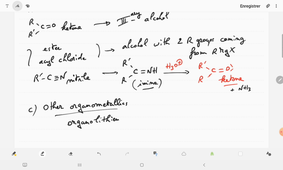 Enregistrer
R
R' C=O ketone → III ary alcohol
ester
acyl chloride → alcohol with 2 R groups coming
from RMgX
R'-C≡N nitrile → R' R C=NH (imine) H₃O⊕ → R' R C=O ketone
+ NH₃
c) Other organometallics
organolithien